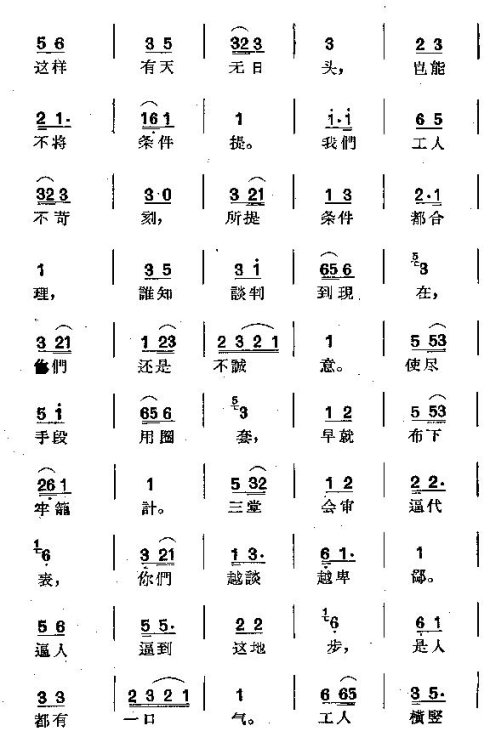 5 6 | 3 5 | 32 3 | 3 | 2 3
这样 有天 无日 头, 岂能
2 1. | 16 1 | 1 | i.i | 6 5
不将 条件 提。 我們 工人
32 3 | 3 0 | 3 21 | 1 3 | 2.1
不苛 刻, 所提 条件 都合
1 | 3 5 | 3 i | 65 6 | 5 3
理, 誰知 談判 到現 在,
3 21 | 1 23 | 2 3 2 1 | 1 | 5 53
們 还是 不誠 意。 使尽
5 i | 65 6 | 5 3 | 1 2 | 5 53
手段 用圈 套, 早就 布下
26 1 | 1 | 5 32 | 1 2 | 2 2.
牢籠 計。 三堂 会审 逼代
1 6 | 3 21 | 1 3. | 6 1. | 1
表, 你們 越談 越卑 鄙。
5 6 | 5 5. | 2 2 | 1 6 | 6 1
逼人 逼到 这地 步, 是人
3 3 | 2 3 2 1 | 1 | 6 65 | 3 5.
都有 一口 气。 工人 橫竪